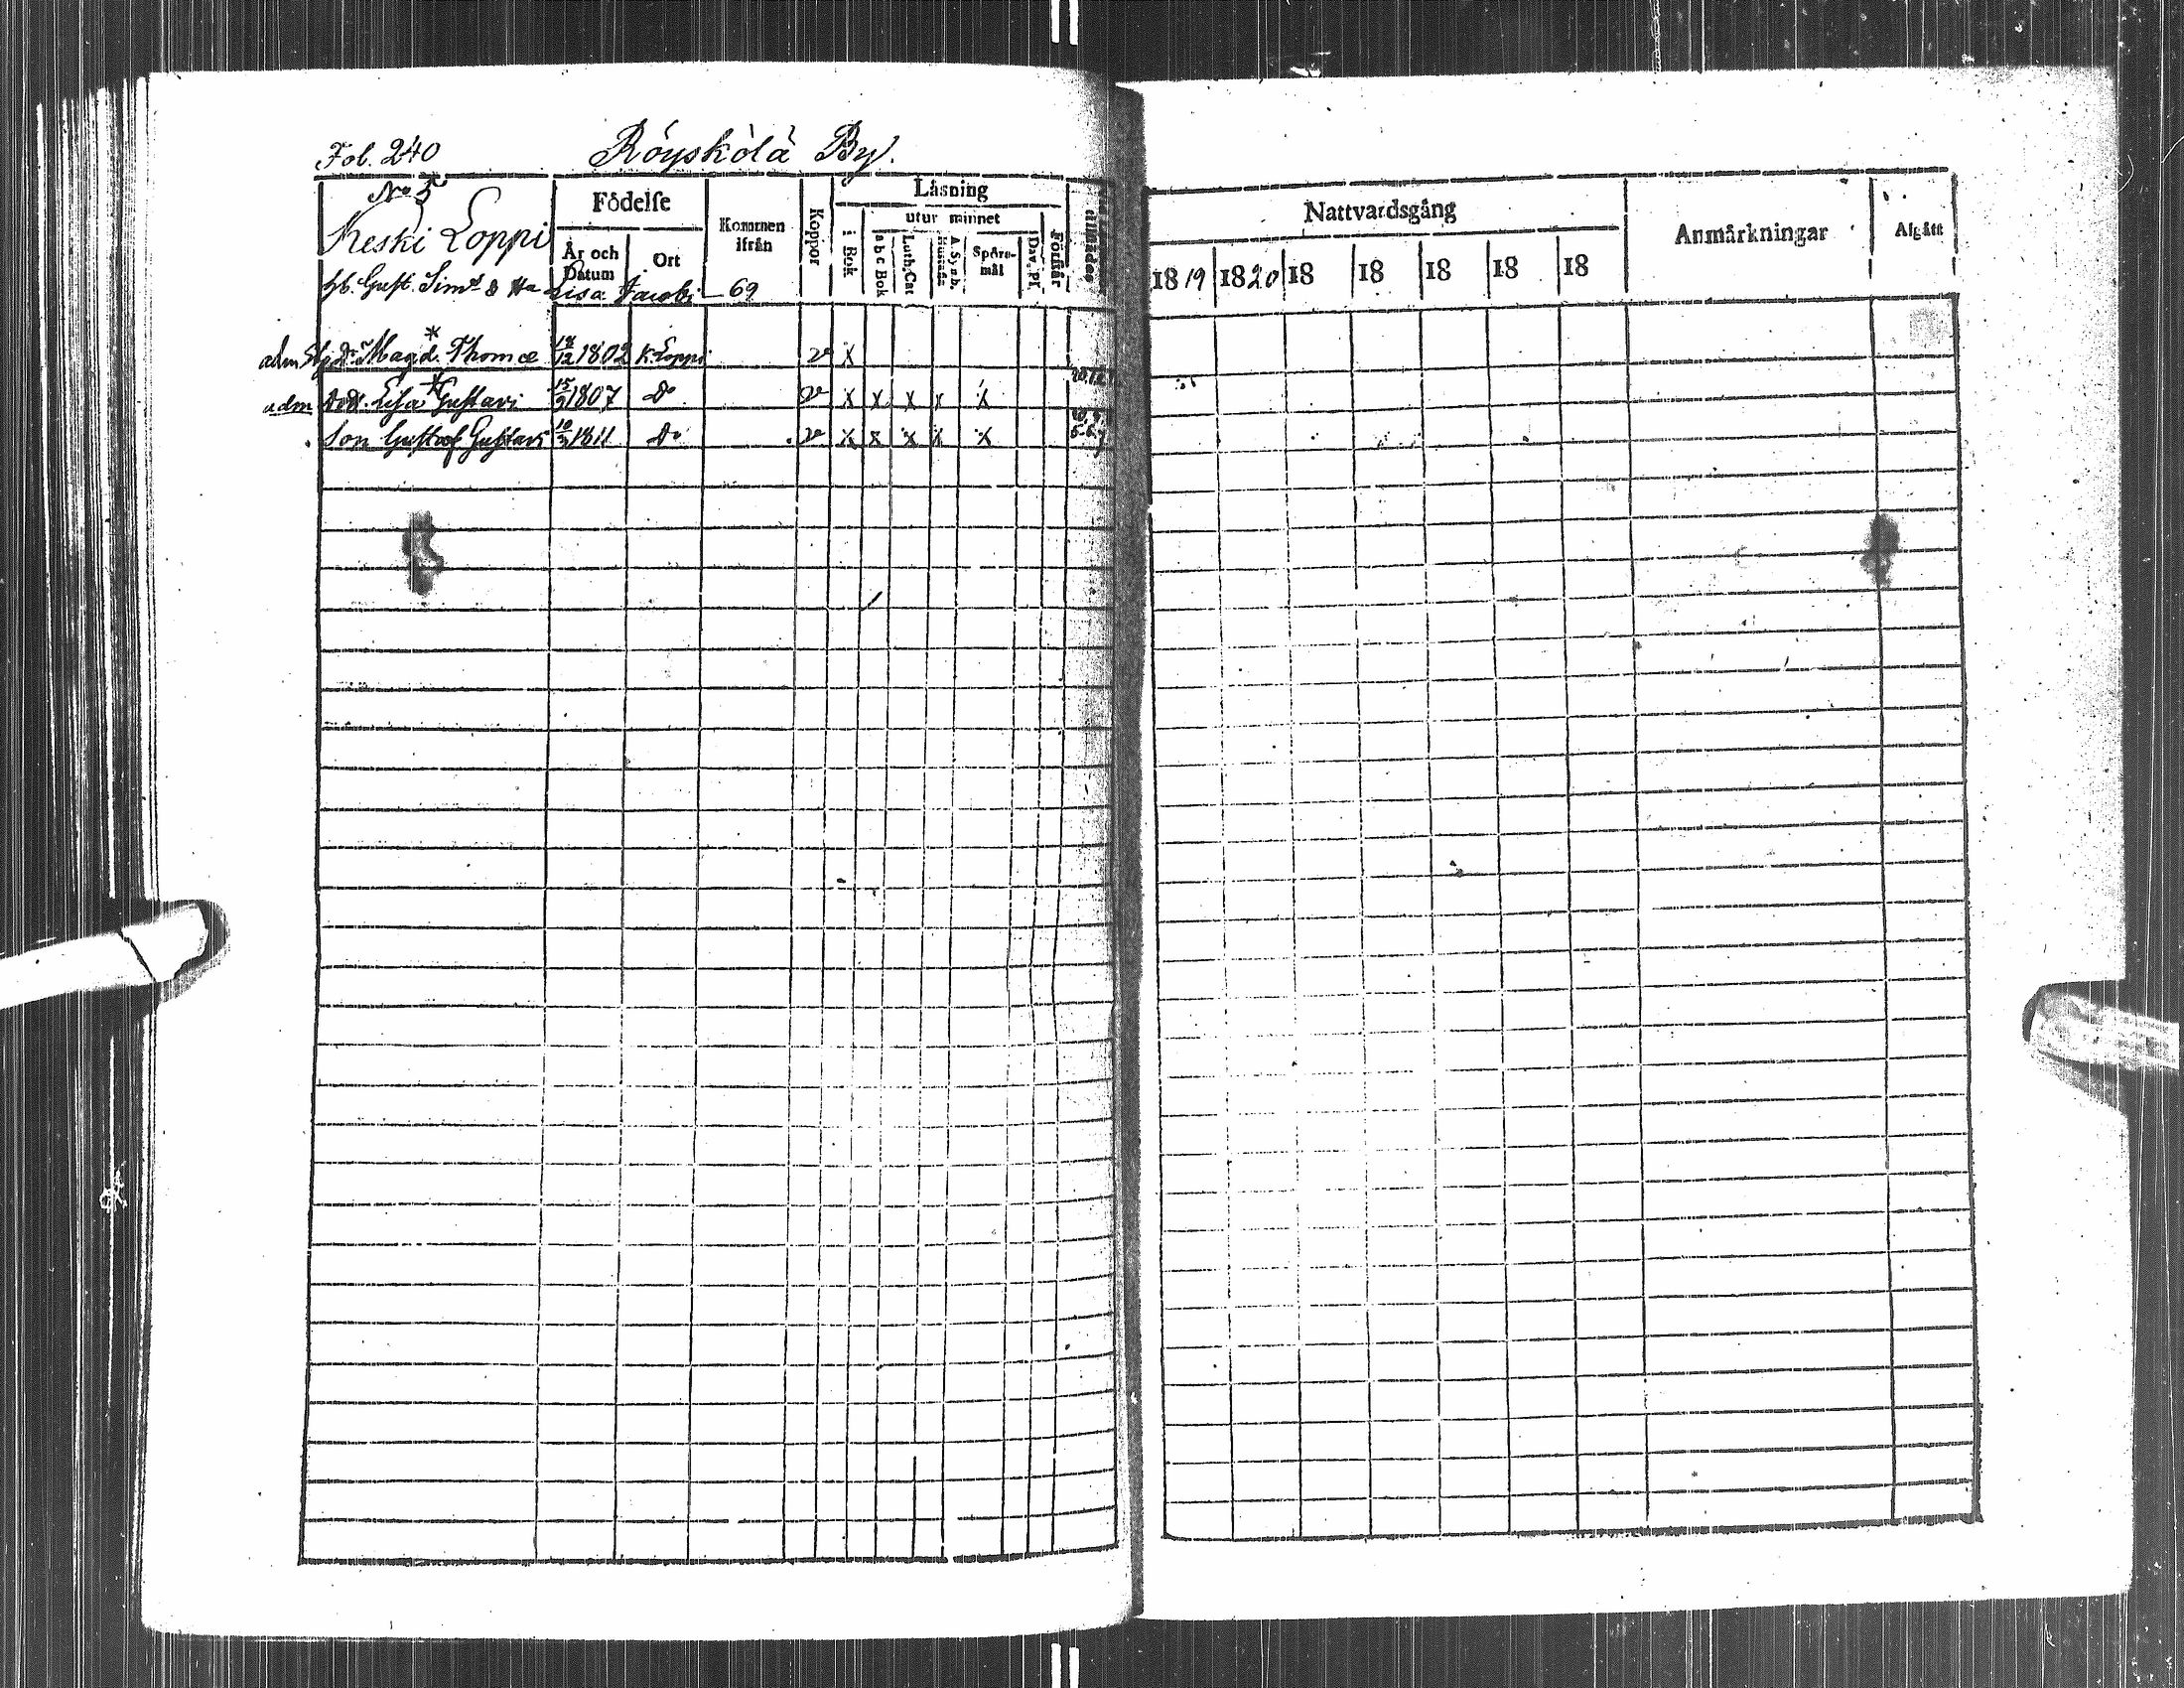 Fol. 240 Röyskölä By.
No 5
Keski Loppi
Födelse
År och Datum
Ort
Kommen ifrån
Koppor
Läsning
i Bok
utur minnet
a b c Bok
Luth. Cat
A. Symb.
Spörs-mål
Dav. Ps.
Förstår
hb. Gust. Sim: & Ha Lisa Jacobi — 69
adm Magd. Thomæ 18/12 1802 K. Loppi v X
adm Lisa Gustavi 15/9 1807 Do v X X X X X
Son Gustaf Gustavi 10/3 1811 Do v X X X X X
Nattvardsgång
Anmärkningar
Afgått
1819 1820 18 18 18 18 18